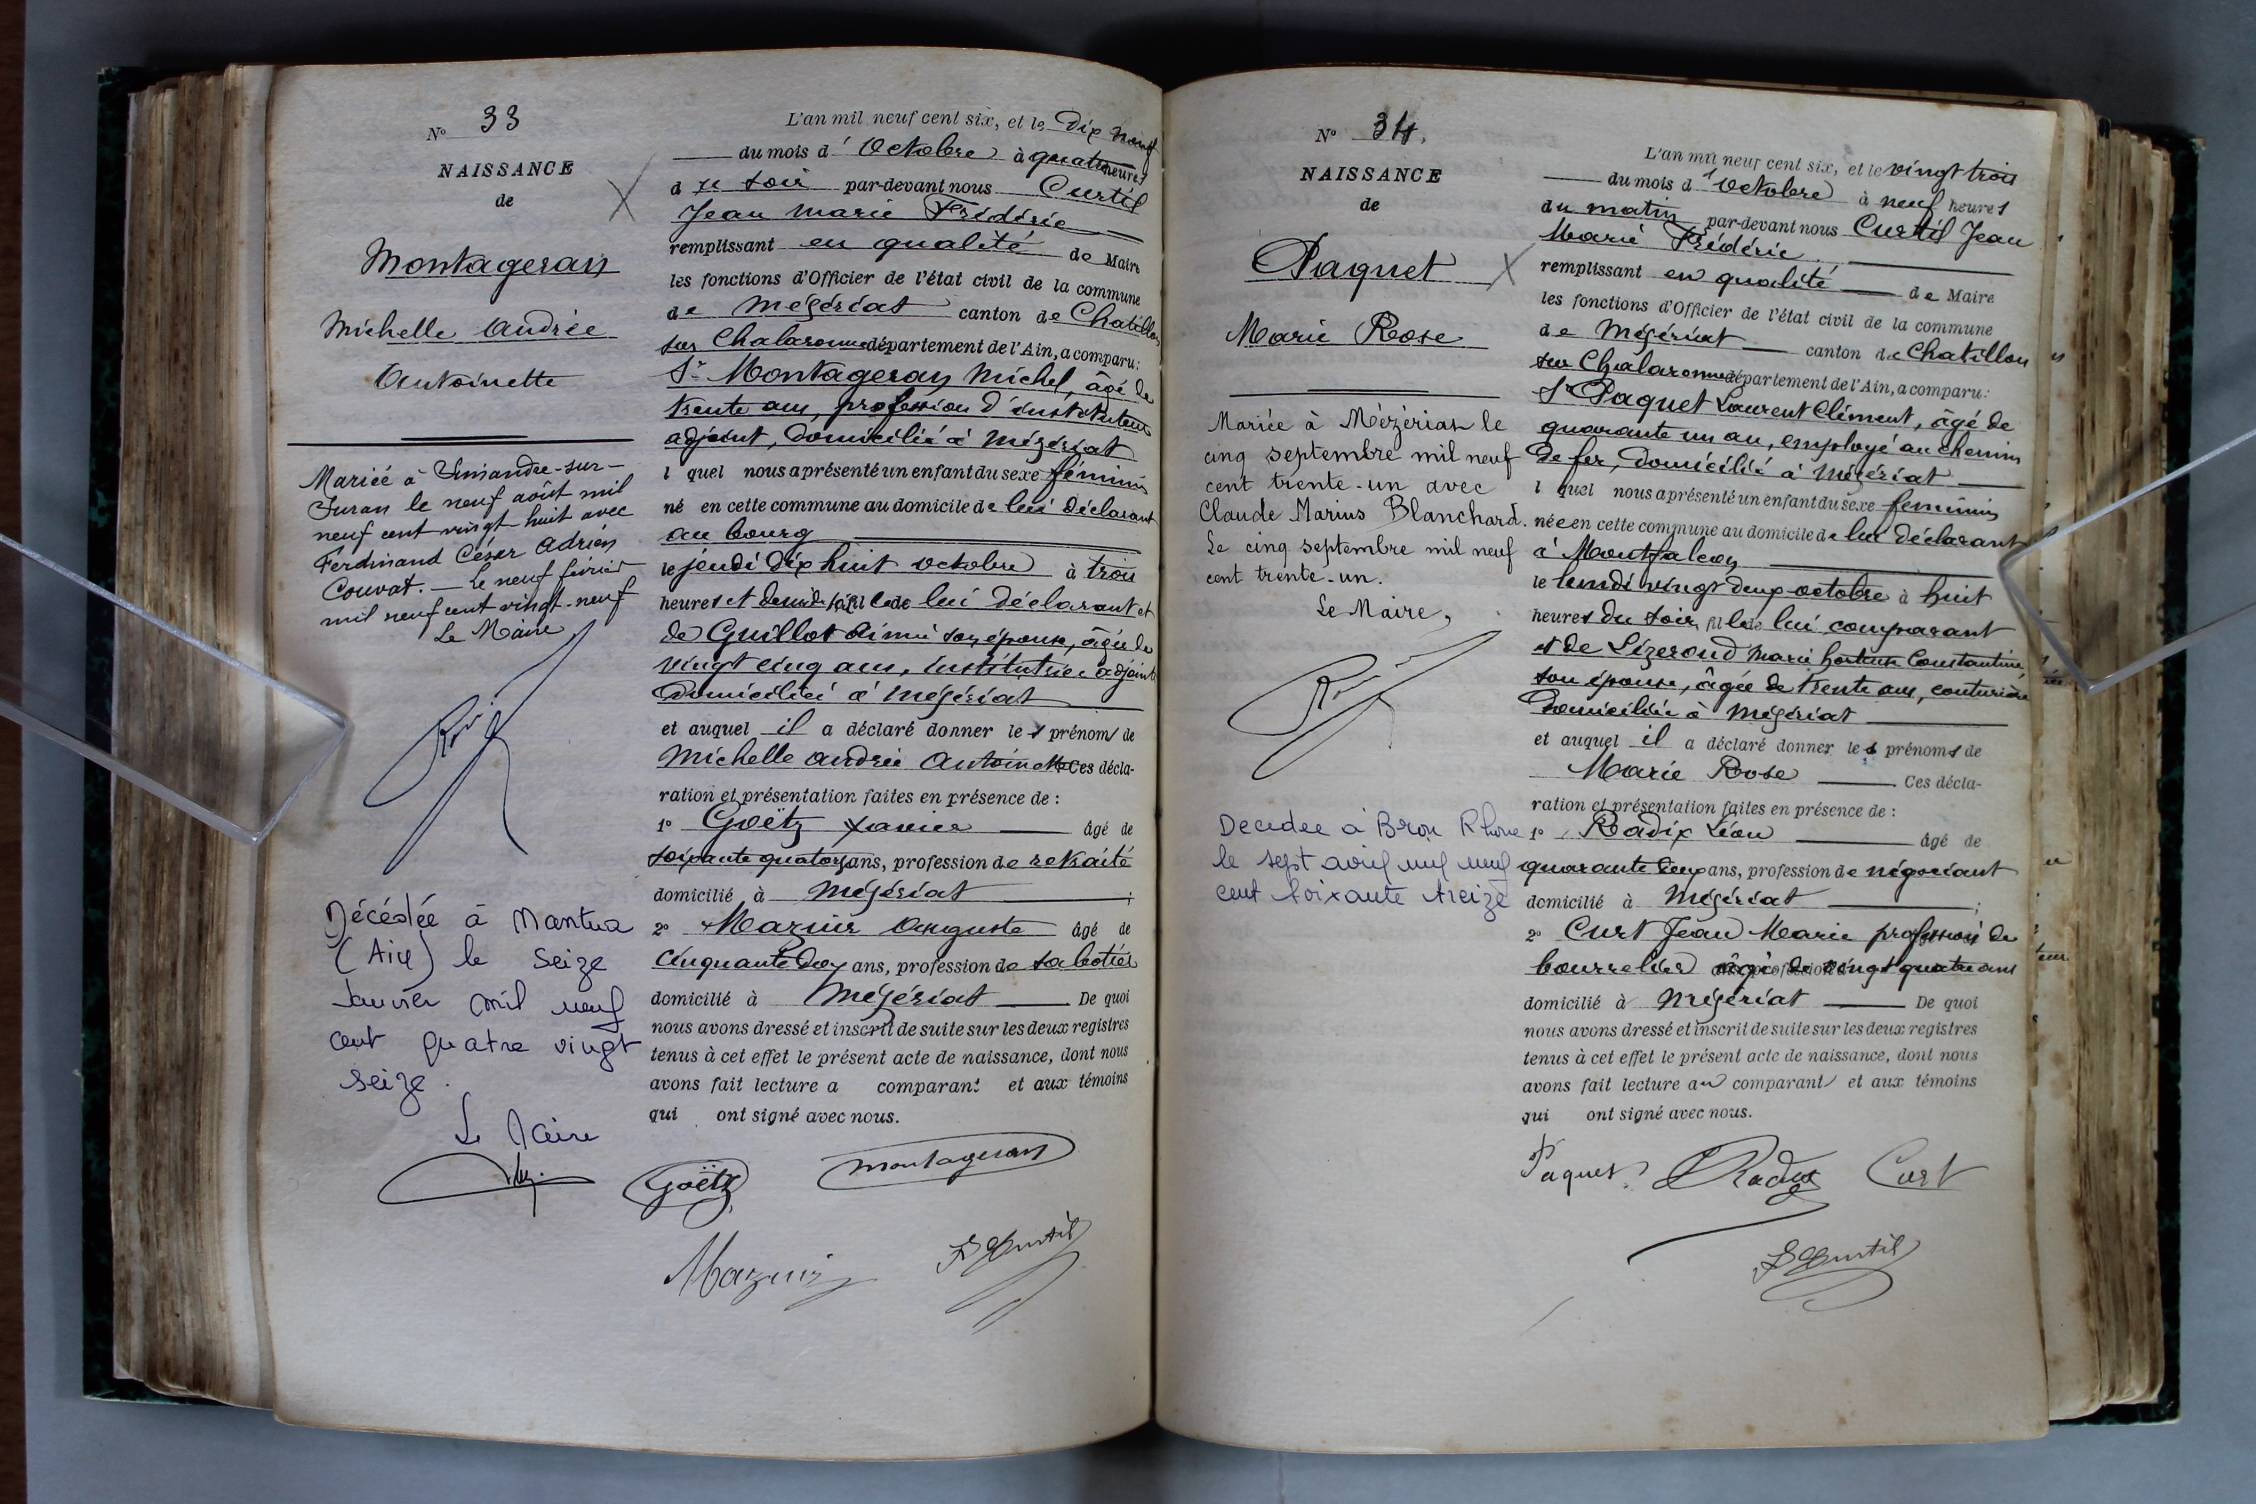 N° 33
NAISSANCE
de
Montageran
Michelle Andrée
Antoinette
Mariée à Simandre-sur-
Suran le neuf août mil
neuf cent vingt-huit avec
Ferdinand César Adrien
Couvat. — Le neuf février
mil neuf cent vingt-neuf
Le Maire
Décédée à Nantua
(Ain) le seize
Janvier mil neuf
cent quatre vingt
seize.
Le Maire
L'an mil neuf cent six, et le Dix neuf
du mois d'Octobre à quatre heures
du soir par-devant nous Curtil
Jean Marie Frédéric
remplissant en qualité de Maire
les fonctions d'Officier de l'état civil de la commune
de Mézériat canton de Chatillon
sur Chalaronne département de l'Ain, a comparu:
Sr Montageran Michel, âgé de
trente ans, profession d'instituteur
adjoint, domicilié à Mézériat
l quel nous a présenté un enfant du sexe féminin
né en cette commune au domicile de lui déclarant
au bourg
le jeudi dix huit octobre à trois
heures et demie fille de lui déclarant et
de Guillot Aimée son épouse, âgée de
vingt cinq ans, institutrice adjointe
domiciliée à Mézériat
et auquel il a déclaré donner les prénoms de
Michelle Andrée Antoinette Ces décla-
ration et présentation faites en présence de :
1° Goëtz Xavier âgé de
soixante quatorze ans, profession de retraité
domicilié à Mézériat ;
2° Mazuir Auguste âgé de
cinquante deux ans, profession de sabotier
domicilié à Mézériat De quoi
nous avons dressé et inscrit de suite sur les deux registres
tenus à cet effet le présent acte de naissance, dont nous
avons fait lecture a comparant et aux témoins
qui ont signé avec nous.
Goëtz Montageran
Mazuir Curtil
N° 34.
NAISSANCE
de
Paquet
Marie Rose
Mariée à Mézériat le
cinq septembre mil neuf
cent trente-un avec
Claude Marius Blanchard.
Le cinq septembre mil neuf
cent trente-un.
Le Maire,
Decedee à Bron Rhone
le sept avril mil neuf
cent soixante treize
L'an mil neuf cent six, et le vingt trois
du mois d'Octobre à neuf heures
du matin par-devant nous Curtil Jean
Marie Frédéric
remplissant en qualité de Maire
les fonctions d'Officier de l'état civil de la commune
de Mézériat canton de Chatillon
sur Chalaronne département de l'Ain, a comparu:
Sr Paquet Laurent Clément, âgé de
quarante un an, employé au chemin
de fer, domicilié à Mézériat
l quel nous a présenté un enfant du sexe feminin
née en cette commune au domicile de lui déclarant
à Montfalcon
le lundi vingt deux octobre à huit
heures du soir, fille de lui comparant
et de Lizeroud Marie hortense Constantine,
son épouse, âgée de trente ans, couturière
domiciliée à Mézériat
et auquel il a déclaré donner les prénoms de
Marie Rose Ces décla-
ration et présentation faites en présence de :
1° Radix Léon âgé de
quarante deux ans, profession de négociant
domicilié à Mézériat ;
2° Curt Jean Marie profession de
bourrelier âgé de vingt quatre ans
domicilié à Mézériat De quoi
nous avons dressé et inscrit de suite sur les deux registres
tenus à cet effet le présent acte de naissance, dont nous
avons fait lecture au comparant et aux témoins
qui ont signé avec nous.
Paquet Radix Curt
Curtil